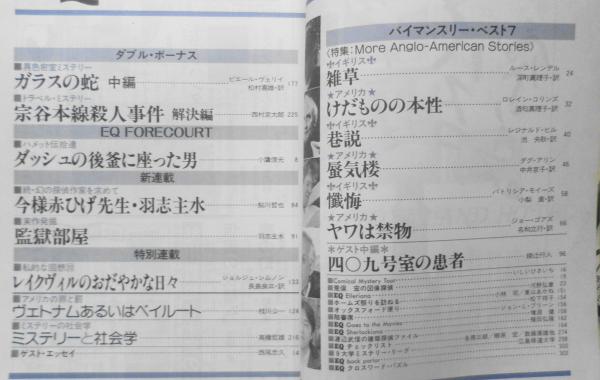 ダブル・ボーナス
■異色密室ミステリー
ガラスの蛇 中編
ピエール・ヴェリイ
松村喜雄・訳 177
■トラベル・ミステリー
宗谷本線殺人事件 解決編
西村京太郎 225
EQ FORECOURT
■ハメット伝拾遺
ダッシュの後釜に座った男
小鷹信光 8
新連載
■続・幻の探偵作家を求めて
今様赤ひげ先生・羽志主水
鮎川哲也 84
■実作発掘
監獄部屋
羽志主水 91
特別連載
■私的な回想録
レイクヴィルのおだやかな日々
ジョルジュ・シムノン
長島良三・訳 133
■アメリカの罪と罰
ヴェトナムあるいはベイルート
枝川公一
■ミステリーの社会学
ミステリーと社会学
高橋哲雄 216
■ゲスト・エッセイ
西尾忠久 14
バイマンスリー・ベスト7
〈特集:More Anglo-American Stories〉
イギリス
雑草
ルース・レンデル
深町眞理子・訳 24
★アメリカ★
けだものの本性
ロレイン・コリンズ
酒匂真理子・訳 32
イギリス
巷説
レジナルド・ヒル
池 央耿・訳 40
★アメリカ★
蜃気楼
ダグ・アリン
中井京子・訳 46
イギリス
懺悔
パトリシア・モイーズ
小梨 直・訳 58
★アメリカ★
ヤワは禁物
ジョー・ゴアズ
名和立行・訳 66
＊ゲスト中編＊
四〇九号室の患者
綾辻行人 96
■Comical Mystery Tour
いしいひさいち 16
■EQ Elleriana
■ホームズ祭りを訪ねる
■オックスフォード便り
■EQ Goes to the Movies
■EQ Sherlockiana
■EQ チェックリスト
■5大学ミステリー・リーグ
■EQ book parlor
■EQ クロスワード・パズル